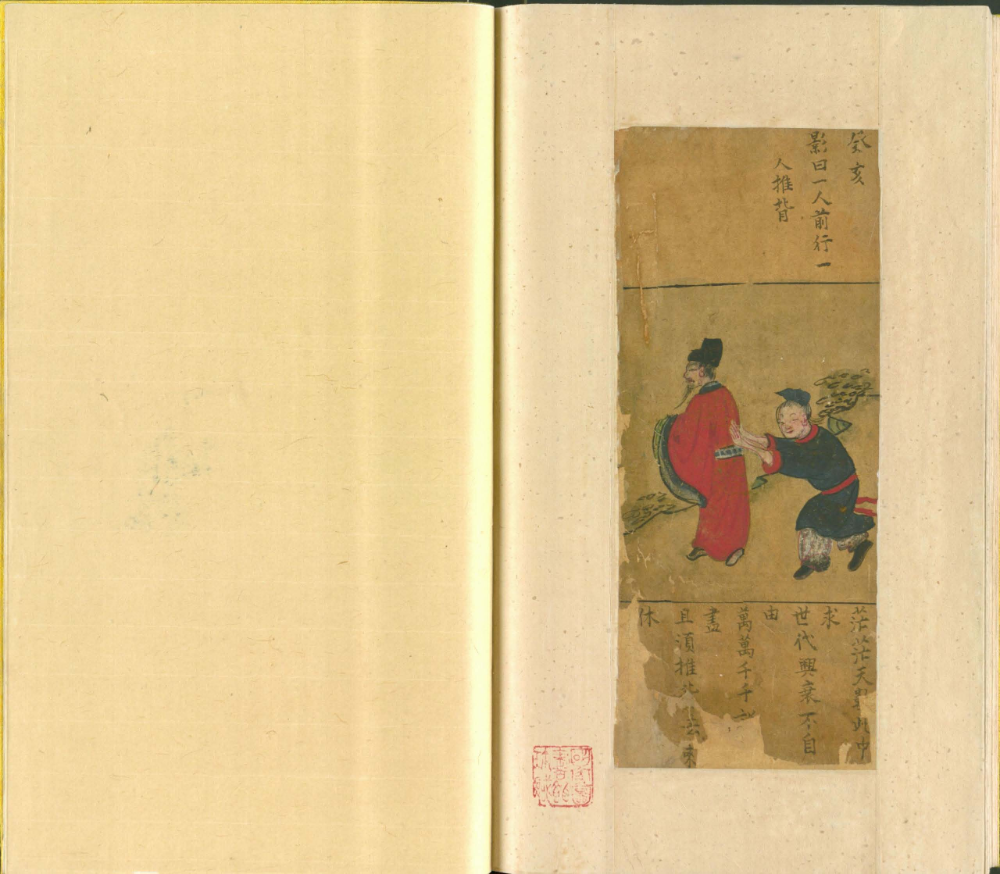 癸亥
影曰一人前行一
人推背
茫茫天數此中
求
世代興衰不自
由
萬萬千千
盡
且須推
休